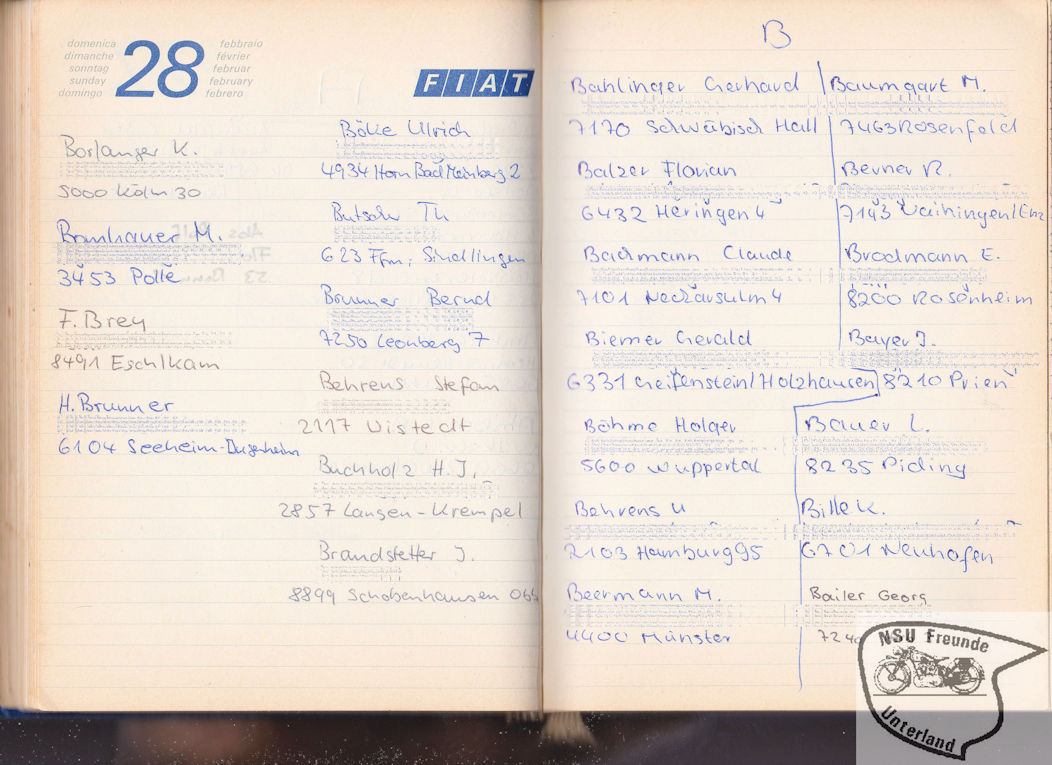 domenica
dimanche
sonntag
sunday
domingo
28
febbraio
février
februar
february
febrero
FIAT
Borlanger K.
5000 Köln 30
Bomhauer M.
3453 Polle
F. Brey
8491 Eschlkam
H. Brunner
6104 Seeheim-Jugenheim
Bölie Ulrich
4934 Horn Bad Meinberg 2
Butschr Th
623 Ffm, Sindlingen
Brunner Bernd
7250 Leonberg 7
Behrens Stefan
2117 Wistedt
Buchholz H. J.
2857 Langen-Krempel
Brandstetter J.
8899 Schobenhausen
B
Bahlinger Gerhard
7170 Schwäbisch Hall
Balzer Florian
6432 Heringen 4
Bachmann Claude
7101 Neckarsulm 4
Biemer Gerald
6331 Greifenstein/Holzhausen
Böhme Holger
5600 Wuppertal
Behrens U
2103 Hamburg 95
Beermann M.
4400 Münster
Baumgart M.
7463 Rosenfeld
Berner R.
7143 Vaihingen/Enz
Brodmann E.
8200 Rosenheim
Bayer J.
8210 Prien
Bauer L.
8235 Piding
Bille K.
6701 Neuhofen
Bailer Georg
NSU Freunde
Unterland